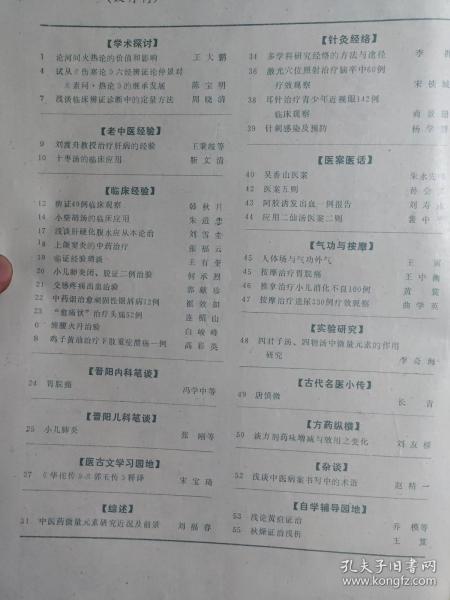 【学术探讨】
1 论河间火热论的价值和影响 王大鹏
4 试从《伤寒论》六经辨证论仲景对
《素问·热论》的继承发展 陈宝明
7 浅谈临床辨证诊断中的定量方法 周晓清
【老中医经验】
9 刘渡舟教授治疗肝病的经验 王秉岐等
10 十枣汤的临床应用 靳文清
【临床经验】
12 痹证40例临床观察 韩秋片
14 小柴胡汤的临床应用 朱进忠
17 浅谈肝硬化腹水应从本论治 刘雪奎
18 上颌窦炎的中药治疗 张福云
19 临证经验琐谈 王有奎
20 小儿肺炎闭、脱证二例治验 何承烈
21 交感疼出血治验
22 中药烟治愈顽固性眼屑病12例
23 “愈痛饮”治疗头痛52例
缠腰火丹治验 白峻峰
8 鸡子黄油治疗下肢重症溃疡一例 高彩英
【晋阳内科笔谈】
24 胃脘痛 冯学中等
【晋阳儿科笔谈】
25 小儿肺炎 张刚等
【医古文学习园地】
27 《华佗传》《郭玉传》释译 宋宝琦
【综述】
31 中医药微量元素研究近况及前景 刘福春
【针灸经络】
34 多学科研究经络的方法与途径 李
36 激光穴位照射治疗脑卒中60例
疗效观察
38 耳针治疗青少年近视眼142例
临床观察
39 针刺感染及预防 杨学
【医案医话】
40 吴香山医案 朱永
42 医案五则 孙会
43 阿胶诱发出血一例报告 刘寿
44 应用二仙汤医案二则
【气功与按摩】
45 人体场与气功外气 王
45 按摩治疗胃脘痛 王中衡
46 推拿治疗小儿消化不良100例 黄
47 按摩治疗遗尿330例疗效观察 曲学英
【实验研究】
48 四君子汤、四物汤中微量元素的作用
研究 李奇海
【古代名医小传】
49 唐慎微 长青
【方药纵横】
50 谈方剂药味增减与效用之变化 刘友樑
【杂谈】
52 浅谈中医病案书写中的术语 赵精一
【自学辅导园地】
53 浅论黄疸证治 乔模等
55 秋燥证治浅析 王
孔夫子旧书网
www.kongfz.com